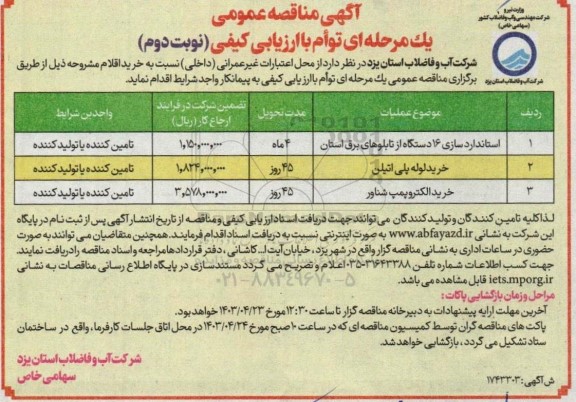 آگهی مناقصه عمومی
یک مرحله ای توأم با ارزیابی کیفی (نوبت دوم)
وزارت نیرو
شرکت مهندسی آب و فاضلاب کشور
(سهامی خاص)
شرکت آب و فاضلاب استان یزد
شرکت آب و فاضلاب استان یزد در نظر دارد از محل اعتبارات غیرعمرانی (داخلی) نسبت به خرید اقلام مشروحه ذیل از طریق
برگزاری مناقصه عمومی یک مرحله ای توأم با ارزیابی کیفی به پیمانکار واجد شرایط اقدام نماید.
ردیف موضوع عملیات مدت تحویل تضمین شرکت در فرایند ارجاع کار (ریال) واجدین شرایط
۱ استانداردسازی ۱۶ دستگاه از تابلوهای برق استان ۴ ماه ۱,۱۵۰,۰۰۰,۰۰۰ تامین کننده یا تولید کننده
۲ خرید لوله پلی اتیلن ۴۵ روز ۱,۸۲۴,۰۰۰,۰۰۰ تامین کننده یا تولید کننده
۳ خرید الکتروپمپ شناور ۴۵ روز ۳,۵۷۸,۰۰۰,۰۰۰ تامین کننده یا تولید کننده
لذا کلیه تامین کنندگان و تولید کنندگان می توانند جهت دریافت اسناد ارزیابی کیفی و مناقصه از تاریخ انتشار آگهی پس از ثبت نام در پایگاه
این شرکت به نشانی www.abfayazd.ir به صورت اینترنتی نسبت به دریافت اسناد اقدام فرمایند. همچنین متقاضیان می توانند به صورت
حضوری در ساعات اداری به نشانی مناقصه گزار واقع در شهر یزد، خیابان آیت ا... کاشانی، دفتر قراردادها مراجعه و اسناد مناقصه را دریافت نمایند.
جهت کسب اطلاعات شماره تلفن ۳۶۲۴۳۳۸۸-۰۳۵ اعلام و تصریح می گردد مستندسازی در پایگاه اطلاع رسانی مناقصات به نشانی
iets.mporg.ir قابل مشاهده می باشد.
۰۲۱-۸۸۳۴۹۶۷۰-۵
مراحل و زمان بازگشایی پاکات:
آخرین مهلت ارایه پیشنهادات به دبیرخانه مناقصه گزار تا ساعت ۱۲:۳۰ مورخ ۱۴۰۳/۰۴/۲۳ خواهد بود.
پاکت های مناقصه گران توسط کمیسیون مناقصه ای که در ساعت ۱۰ صبح مورخ ۱۴۰۳/۰۴/۲۴ در محل اتاق جلسات کارفرما، واقع در ساختمان
ستاد تشکیل می گردد، بازگشایی خواهد شد.
شرکت آب و فاضلاب استان یزد
سهامی خاص
ش آگهی: ۱۷۴۳۳۰۳